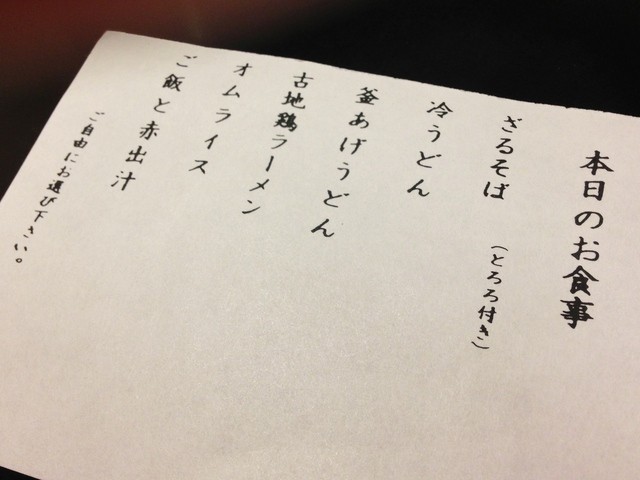 本日のお食事
ざるそば (とろろ付き)
冷うどん
釜あげうどん
古地鶏ラーメン
オムライス
ご飯と赤出汁
ご自由にお選び下さい。